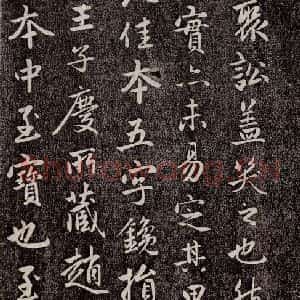 聚訟蓋笑之也然
實亦未易定其甲
佳本五字鑱損
王子慶所藏趙
本中至寶也至